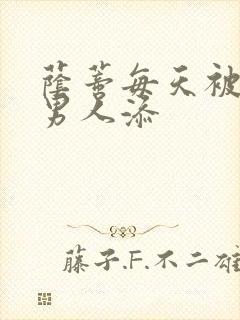 蔭蒂每天被
男人添
藤子.F.不二雄